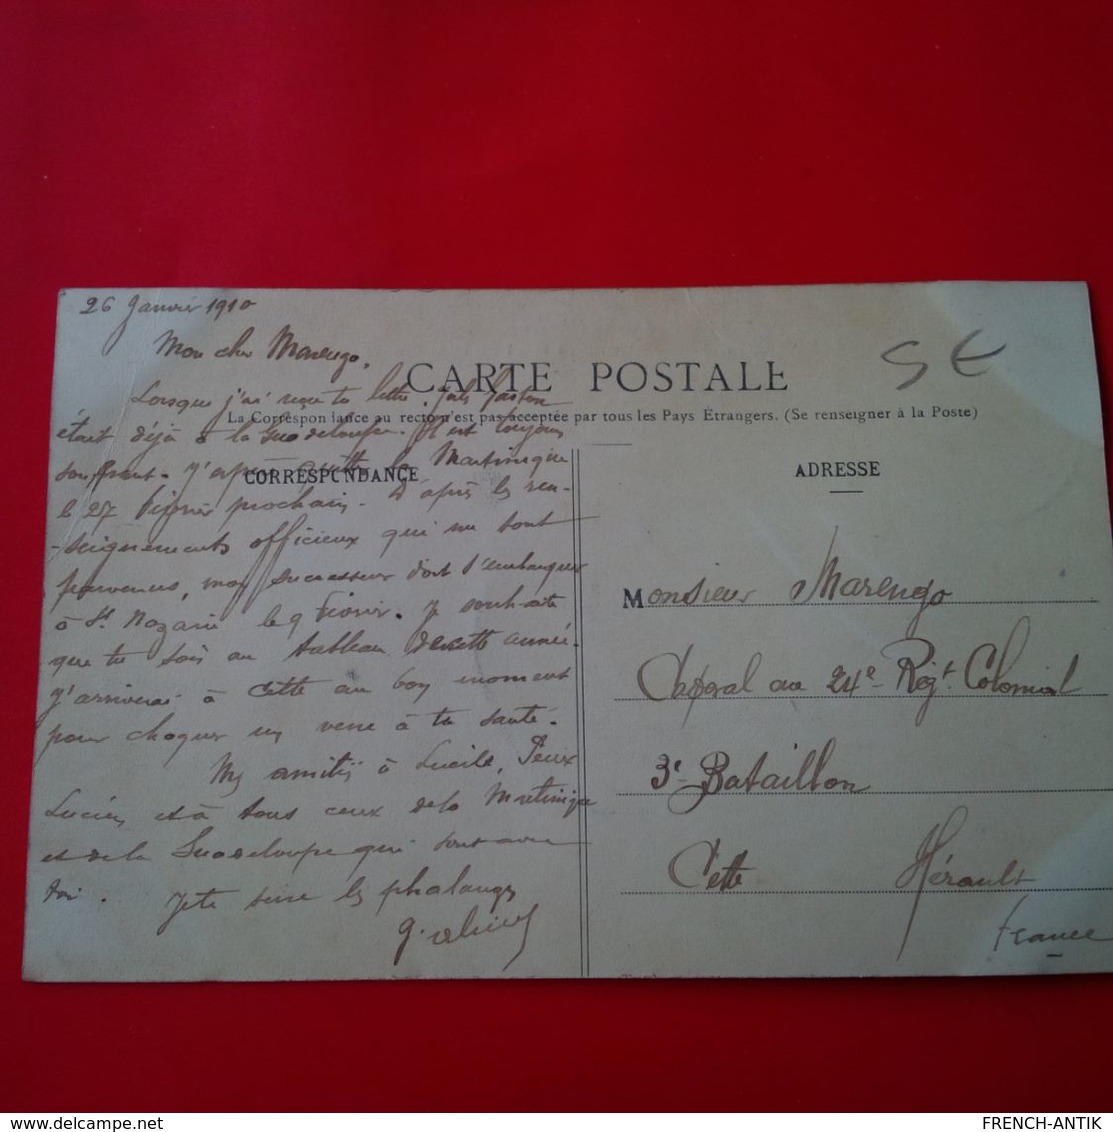 26 Janvier 1910
Mon cher Marengo,
CARTE POSTALE
5 E
La Correspondance au recto n'est pas acceptée par tous les Pays Étrangers. (Se renseigner à la Poste)
CORRESPONDANCE
Lorsque j'ai reçu ta lettre, Gaston
était déjà à la Guadeloupe. Il est toujours
souffrant. J'espère quitter la Martinique
le 27 février prochain. D'après les ren-
-seignements officieux qui me sont
parvenus, mon successeur doit s'embarquer
à St Nazaire le 9 Février. Je souhaite
que tu sois au tableau de cette année.
J'arriverai à Cette au bon moment
pour choquer un verre à ta santé.
Mes amitiés à Lucile,
Lucien et à tous ceux de la Martinique
et de la Guadeloupe qui sont avec
toi. Je te serre les phalanges
ADRESSE
Monsieur Marengo
Caporal au 24e Regt Colonial
3e Bataillon
Cette Hérault
France
FRENCH-ANTIK
www.delcampe.net